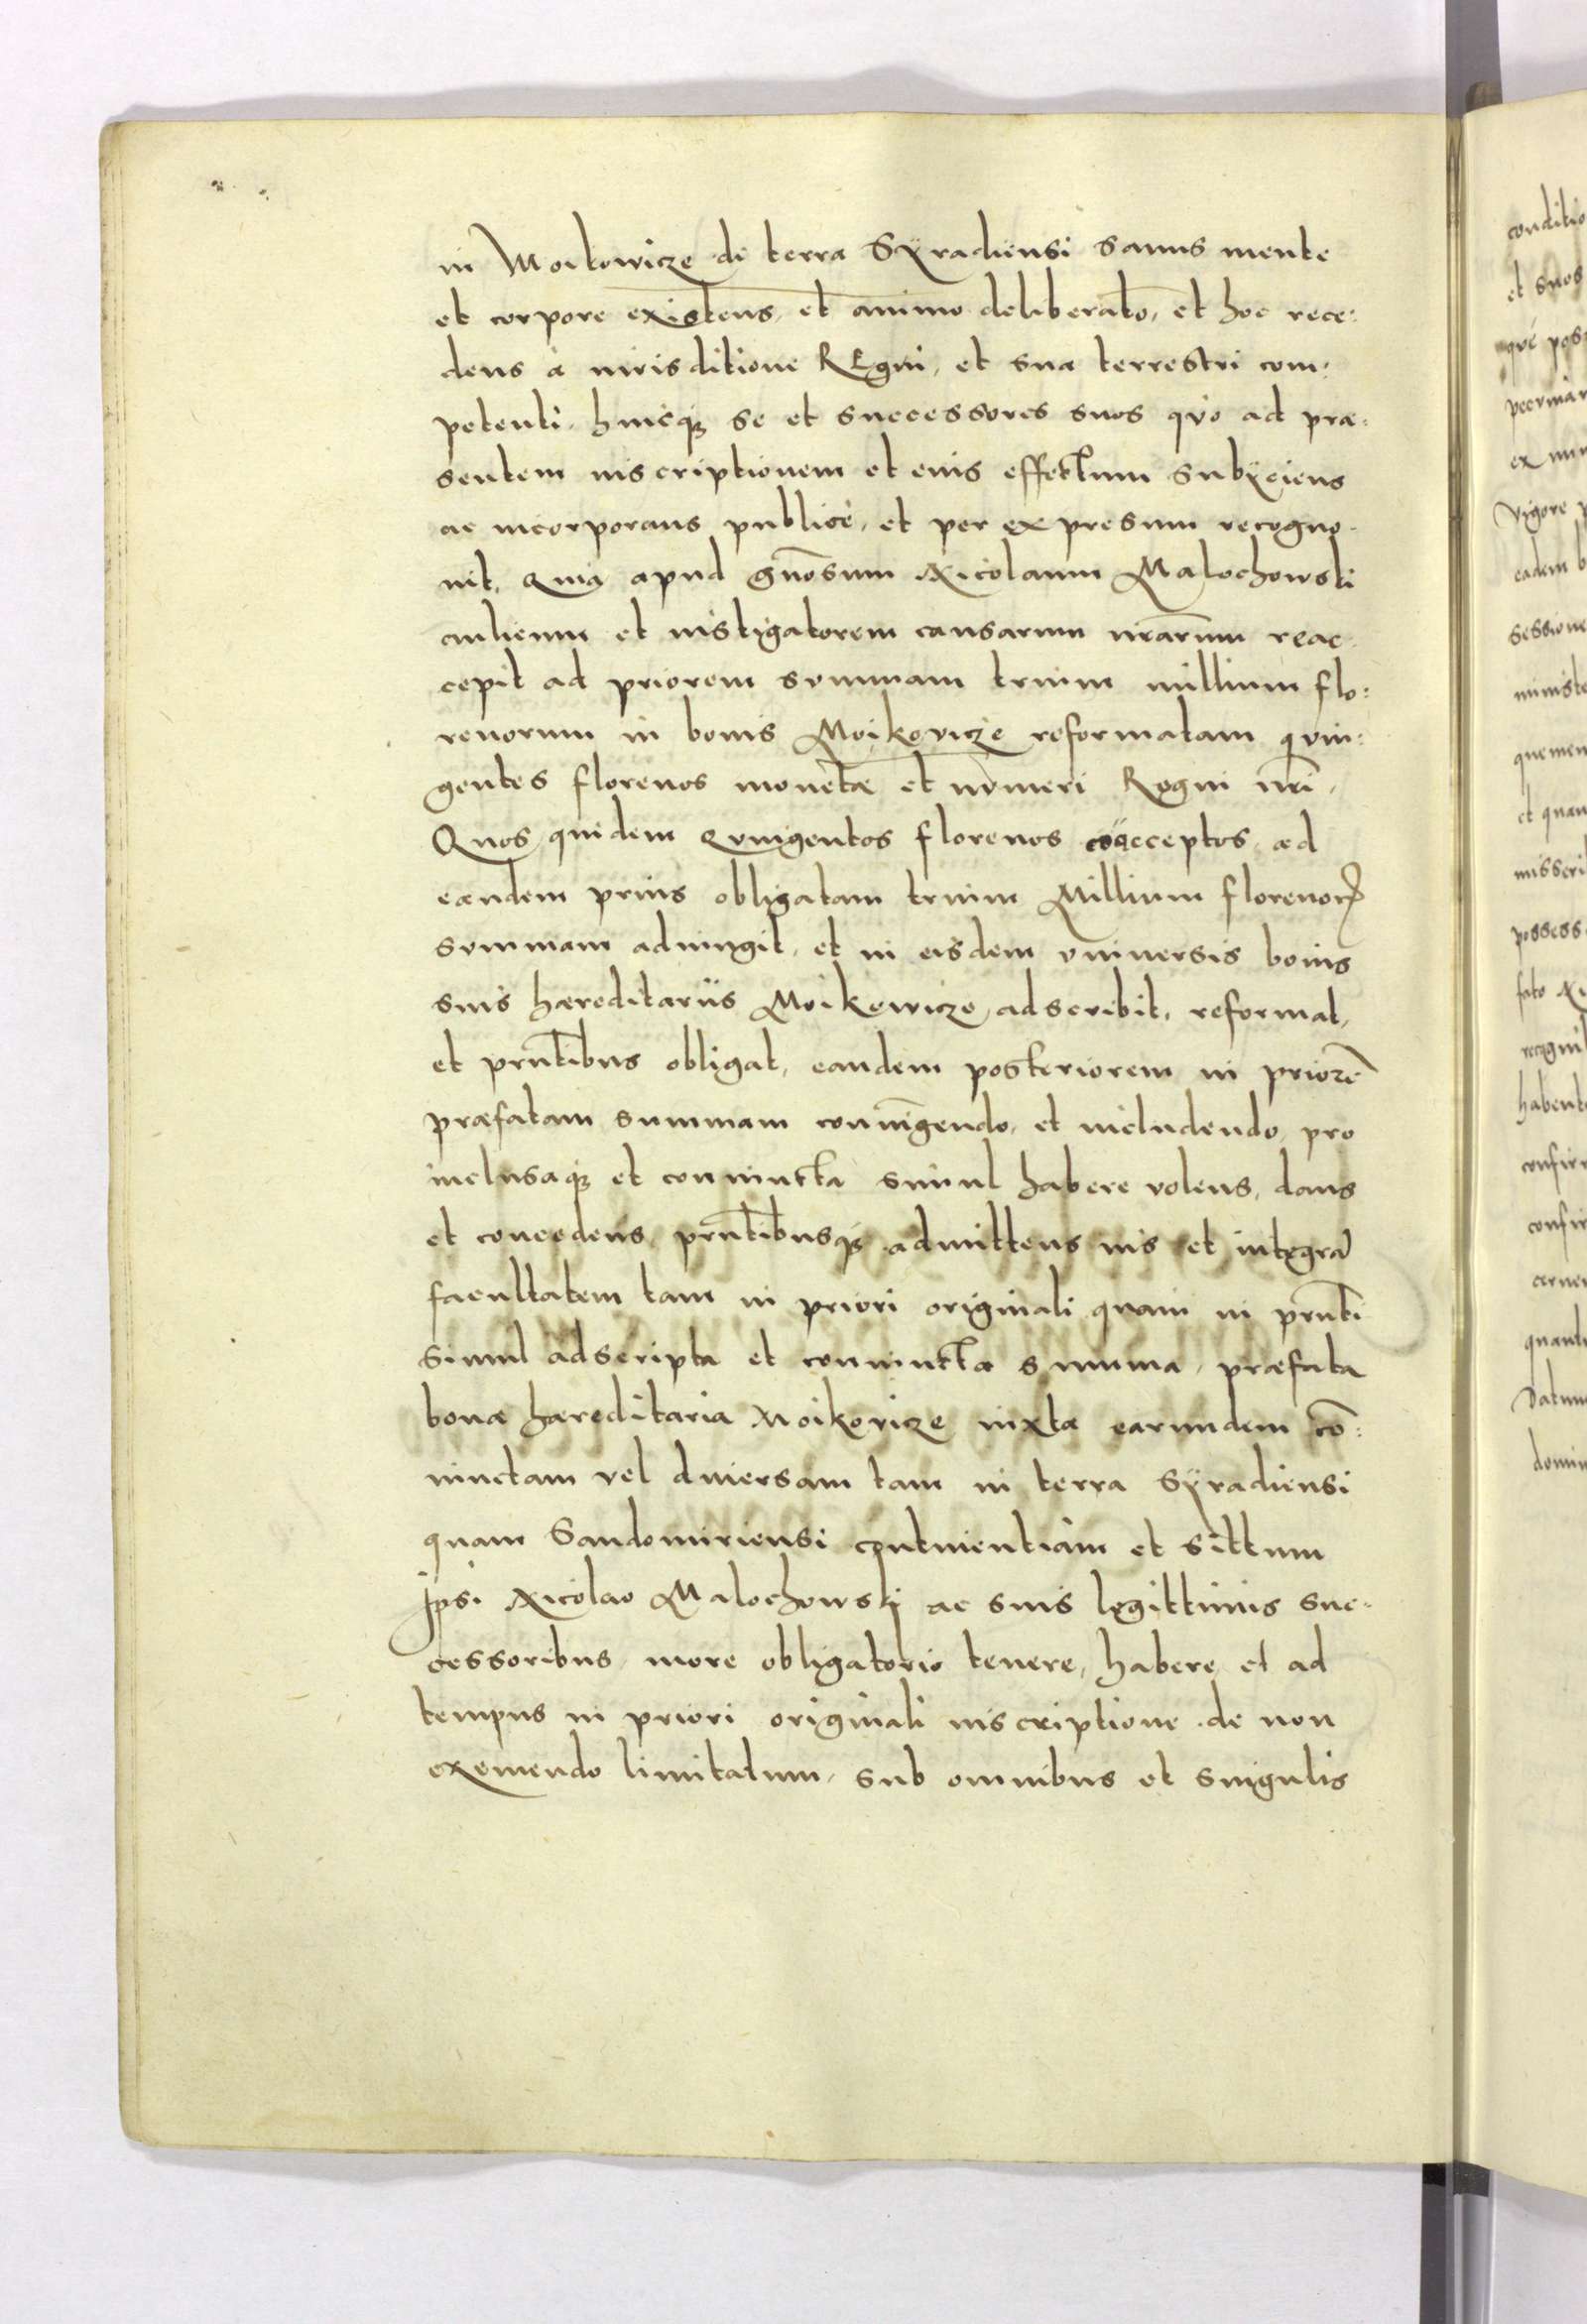 in Moikowicze de terra Syradiensi sanus mente
et corpore existens, et animo deliberato, et hoc rece:
dens a iurisditione REgni, et sua terrestri com:
petenti, huicq3 se et successores suos quo ad præ:
sentem inscriptionem et eius effectum subÿciens
ac incorporans publice, et per expresum recogno:
uit, Quia apud gn̄osum Nicolaum Malochowski
aulicum et instigatorem causarum nr̄arum reac:
cepit ad priorem summam trium millium flo:
renorum in bonis Moikovicze reformatam quin:
gentes florenos monetæ et numeri Regni nr̄i,
Quos quidem Quingentos florenos acceptos ad
eandem prius obligatam trium Millium florenor̄
summam adiungit, et in eisdem vniuersis bonis
suis hæreditariis Moikowicze adscribit, reformat,
et pn̄tibus obligat, eandem posteriorem in priorē
præfatam summam coniungendo, et includendo, pro
inclusaq3 et coniuncta simul habere volens, dans
et concedens, pn̄tibusq3 admittens ius et integrā
facultatem tam in priori originali quam in pn̄ti
simul adscripta et coniuncta summa, præfata
bona hæreditaria Moikovicze iuxta earundem cō:
iunctam vel diuersam tam in terra Sÿradiensi
quam Sandomiriensi continentiam et sittum
Ipsi Nicolao Malochowski ac suis legittimis suc:
cessoribus more obligatorio tenere, habere et ad
tempus in priori originali inscriptione de non
exemendo limitatum, sub omnibus et singulis
conditio
et suos
que poss
ex
vigore
eadem b
sessione
ministe
quemen
et quan
possess
recogni
habent
quant
Datum